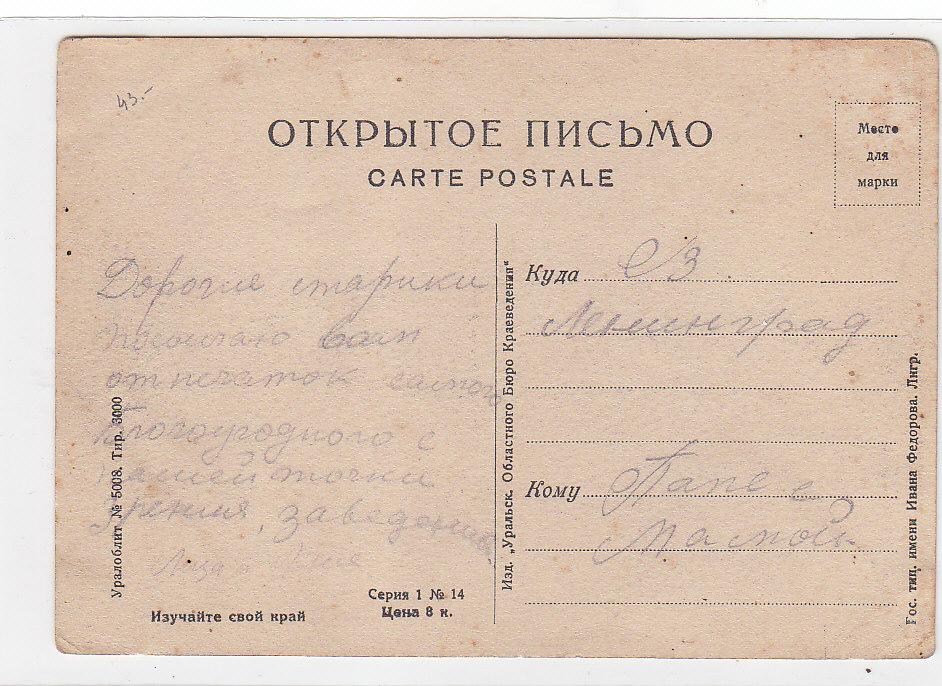 43.-
ОТКРЫТОЕ ПИСЬМО
CARTE POSTALE
Место
для
марки
Дорогие старики
Посылаю вам
отпечаток самого
благородного с
нашей точки
зрения, заведения
Изучайте свой край
Серия 1 № 14
Цена 8 к.
Уралоблит № 5008. Тир. 3000
Изд. „Уральск. Областного Бюро Краеведения“
Куда
Ленинград
Кому Папе с
Мамой
Гос. тип. имени Ивана Федорова. Лнгр.